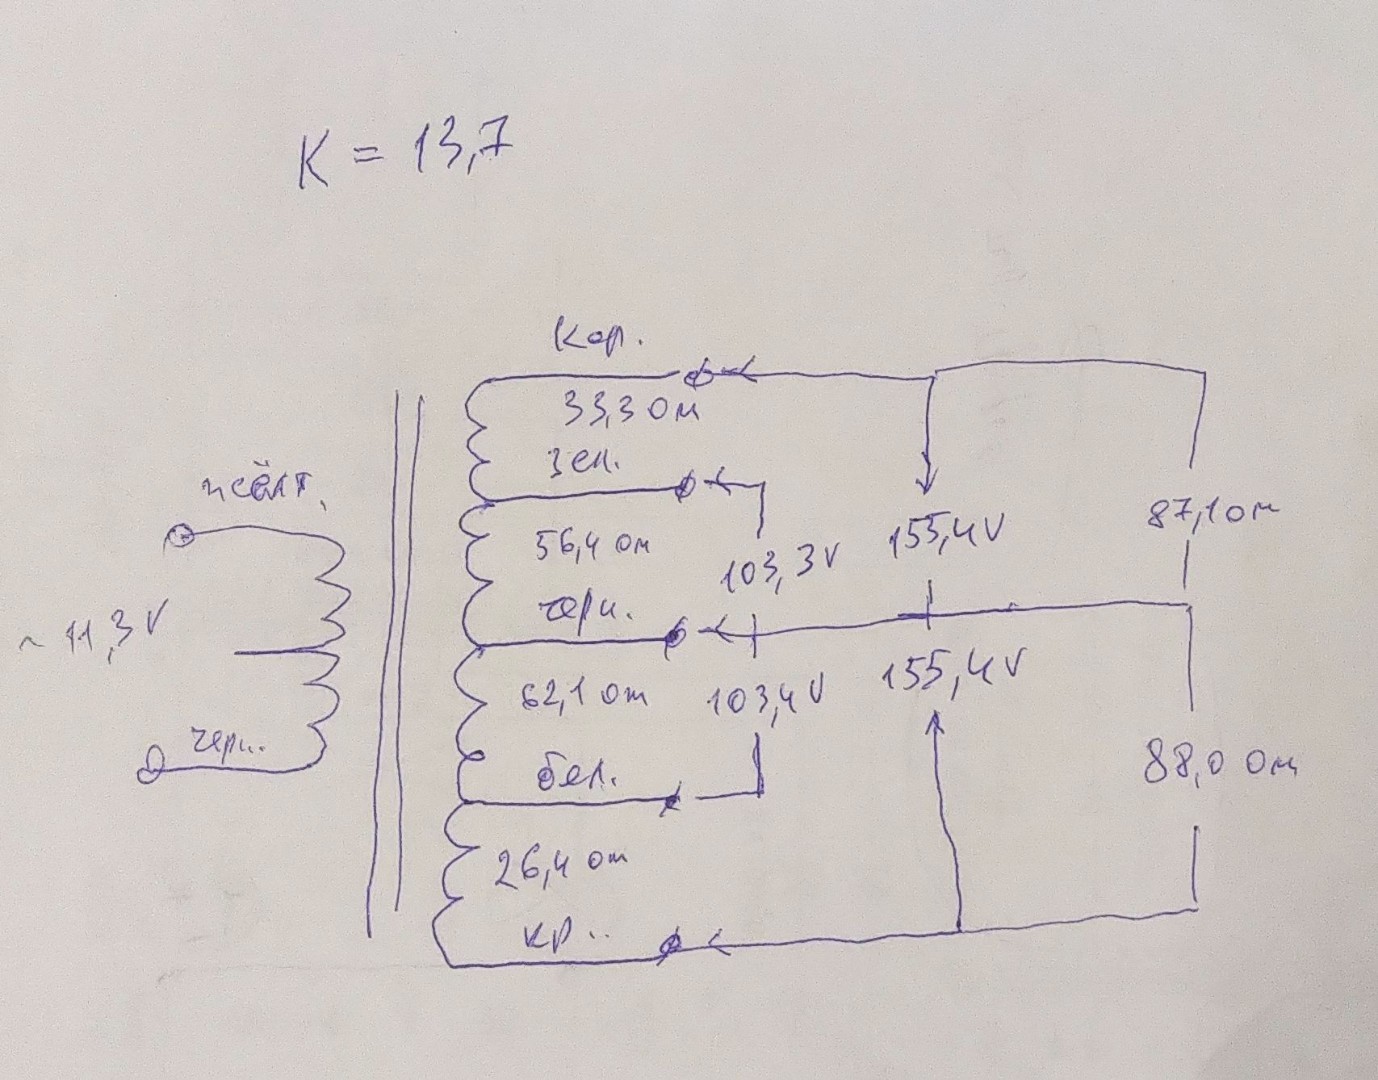 K = 13,7
кор.
33,3 ом
зел.
жёлт.
56,4 ом
103,3V
155,4V
87,1 ом
черн.
~ 11,3 V
62,1 ом
103,4V
155,4V
черн.
бел.
88,0 ом
26,4 ом
кр..